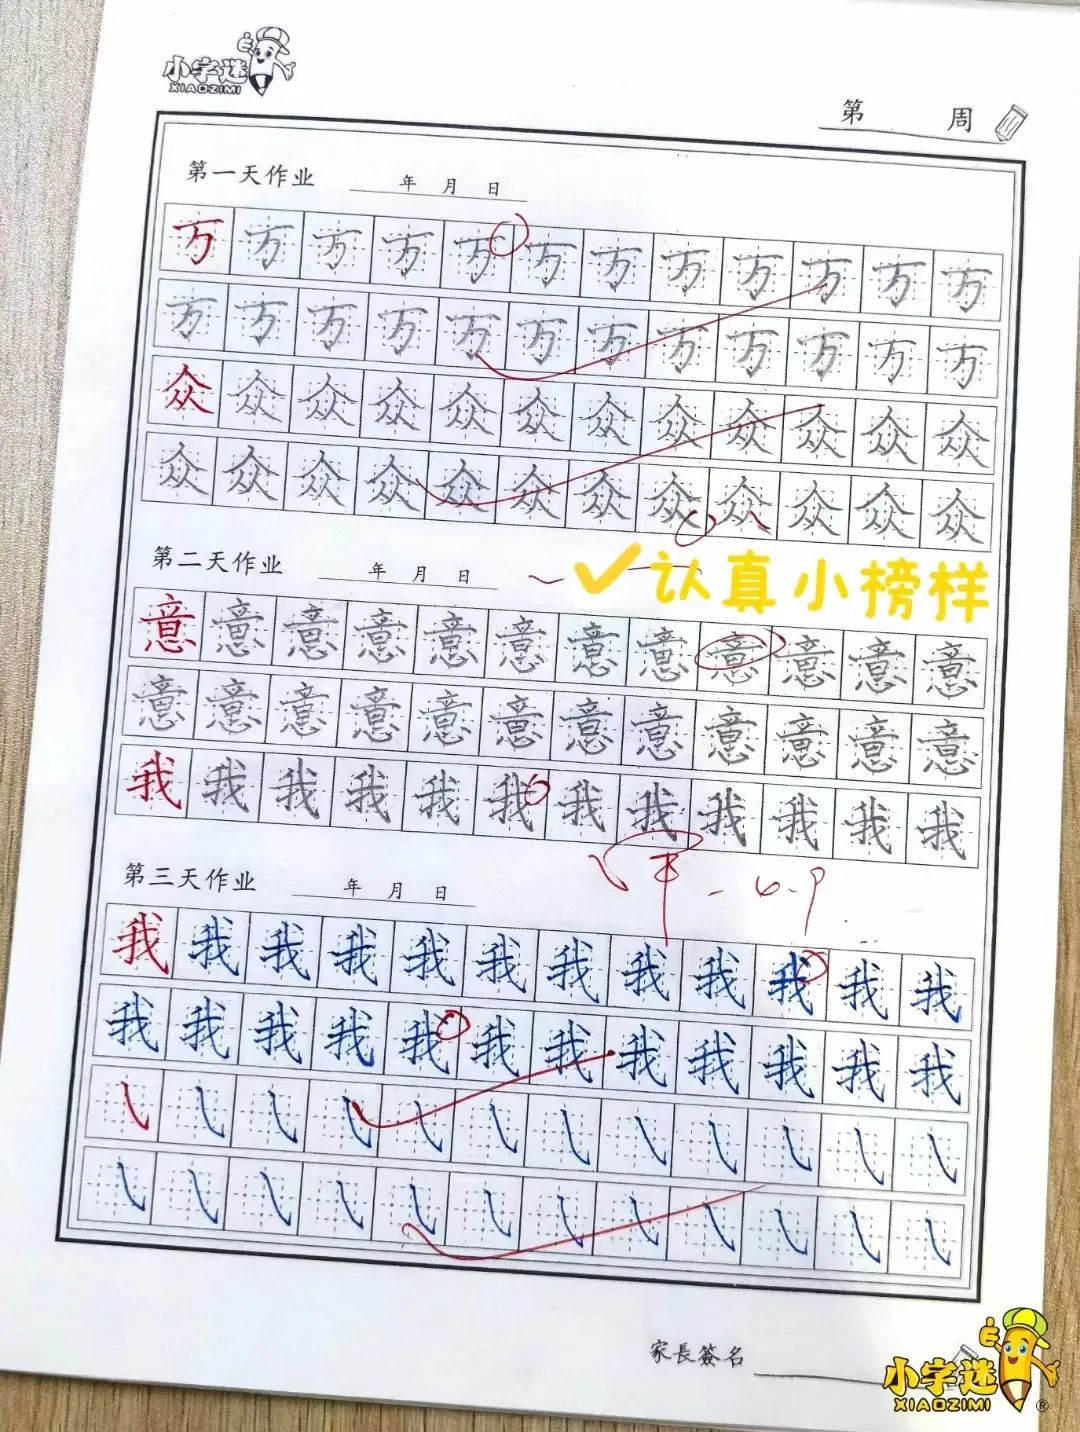 小字迷
XIAOZIMI
第 周
第一天作业 年 月 日
万 万 万 万 万 万 万 万 万 万 万 万
万 万 万 万 万 万 万 万 万 万 万 万
众 众 众 众 众 众 众 众 众 众 众 众
众 众 众 众 众 众 众 众 众 众 众 众
第二天作业 年 月 日
认真小榜样
意 意 意 意 意 意 意 意 意 意 意 意
意 意 意 意 意 意 意 意 意 意 意 意
我 我 我 我 我 我 我 我 我 我 我 我
6.9
第三天作业 年 月 日
我 我 我 我 我 我 我 我 我 我 我 我
我 我 我 我 我 我 我 我 我 我 我 我
家長簽名
小字迷
XIAOZIMI®